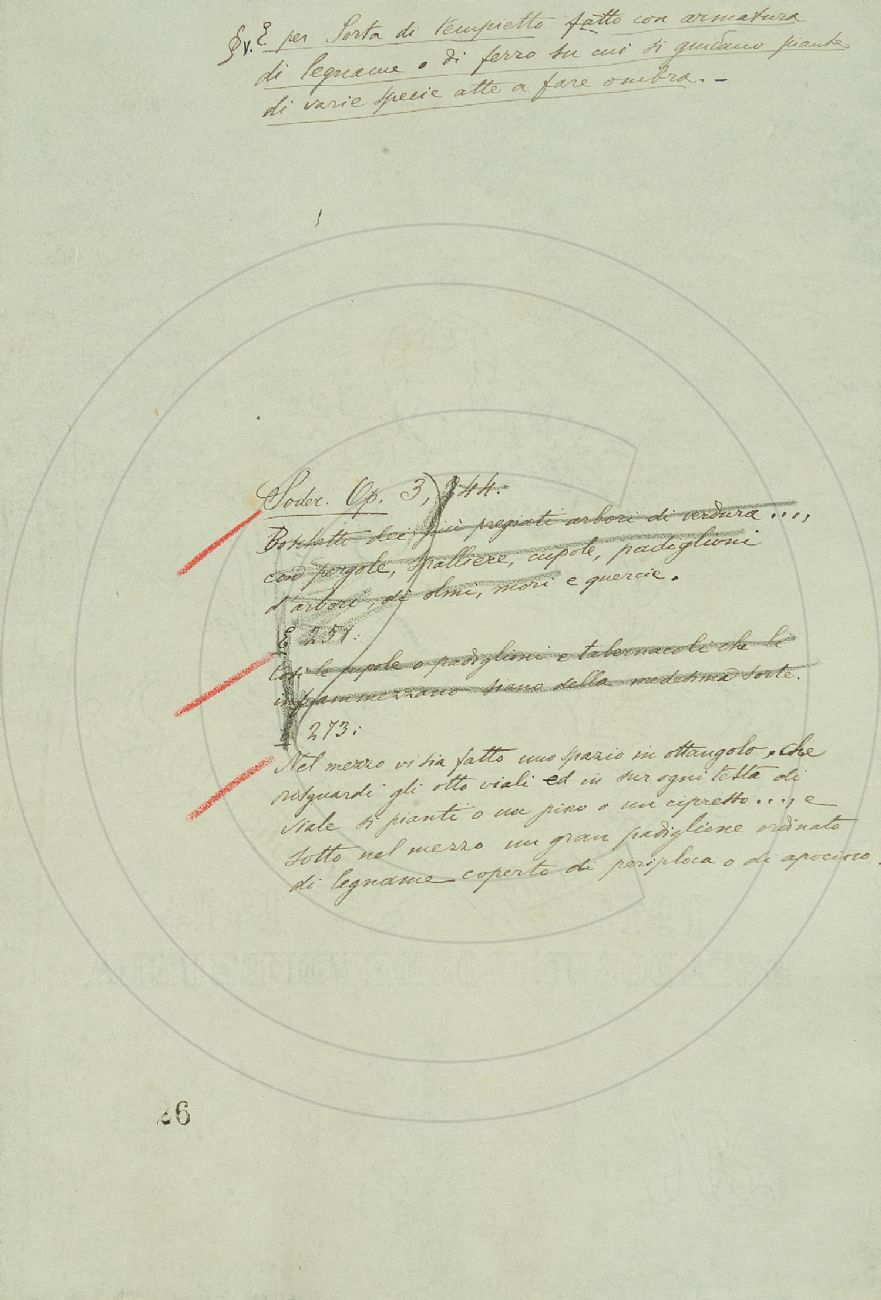 § V. E per Sorta di tempietto fatto con armatura
di legname o di ferro su cui si guidano piante
di varie specie atte a fare ombra. –
Soder. Op. 3, 244.
Boschetti dei più pregiati arbori di verdura ...,
con pergole, spalliere, cupole, padiglioni
d'arbori, di olmi, mori e quercie.
E 251:
le cupole o padiglioni e tabernacoli che le
inframmezzano siano della medesima sorte.
273:
Nel mezzo vi sia fatto uno spazio in ottangolo, che
risguardi gli otto viali ed in sur ogni testa di
viale si pianti o un pino o un cipresso ..., e
sotto nel mezzo un gran padiglione ordinato
di legname coperto di periploca o di apocino.
26